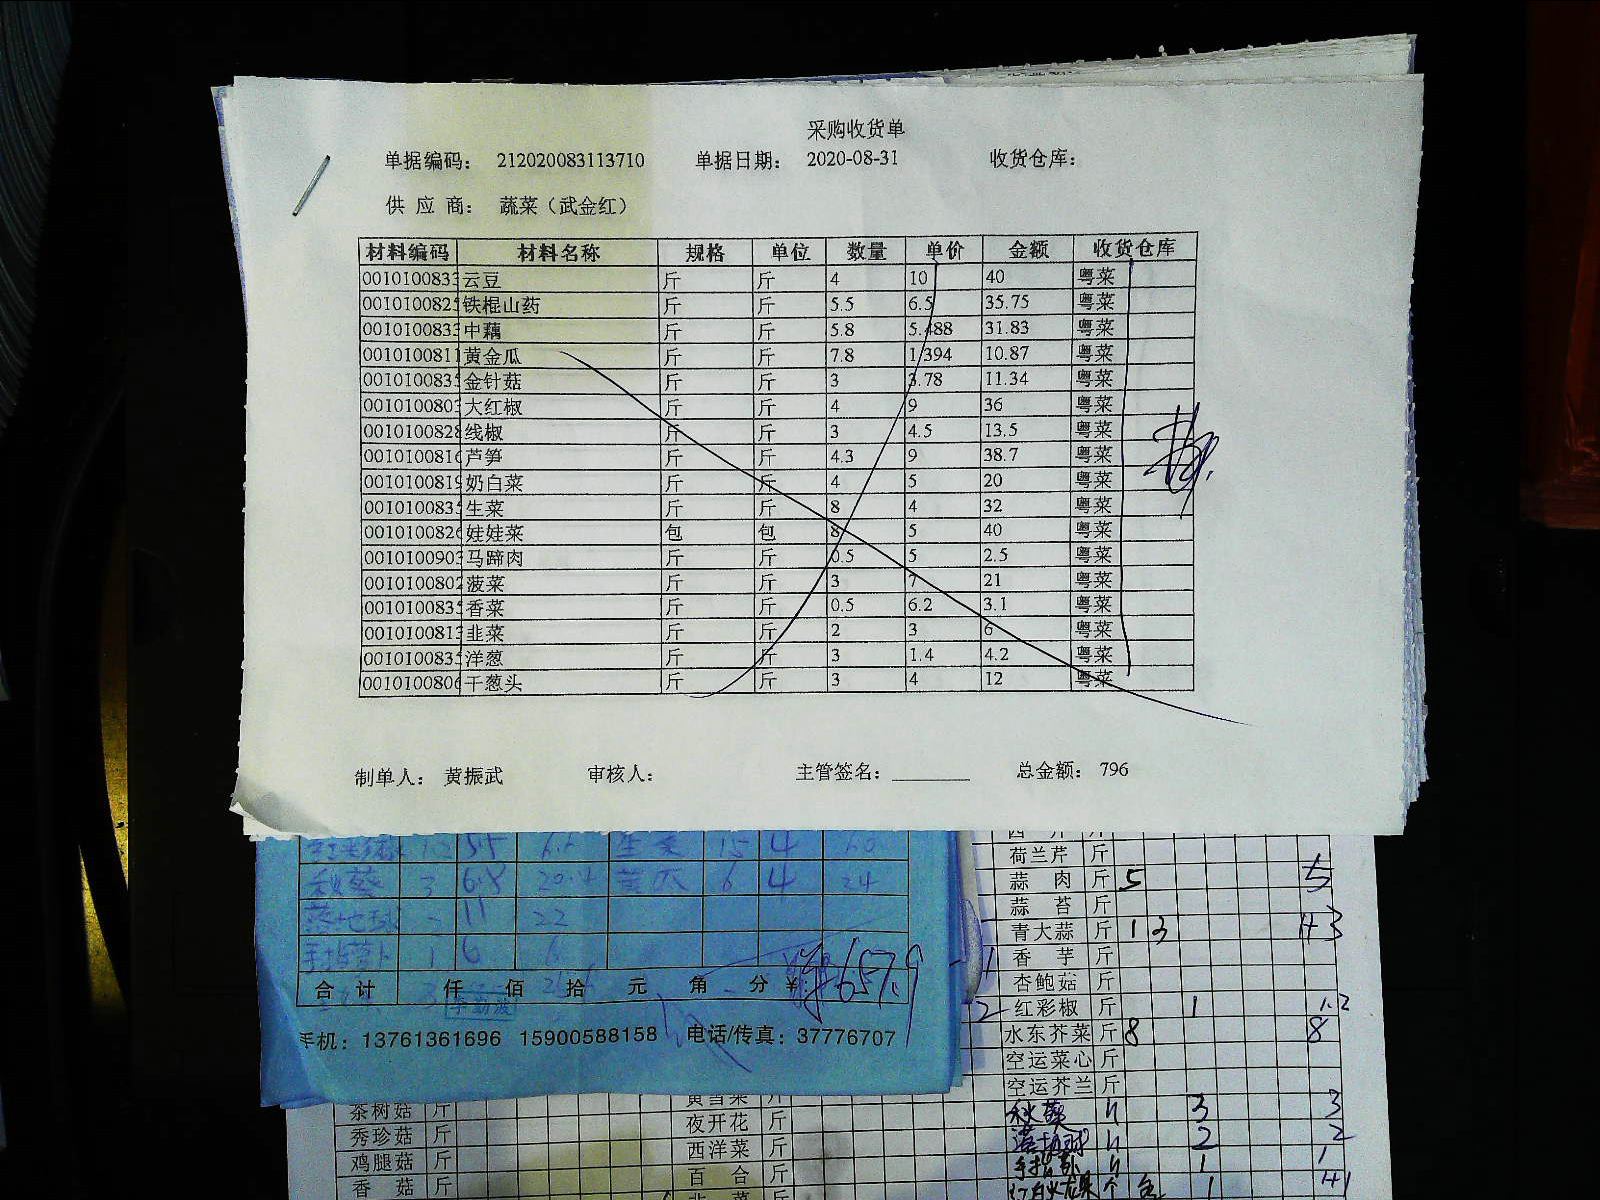 采购收货单
单据编码： 212020083113710 单据日期： 2020-08-31 收货仓库：
供 应 商： 蔬菜（武金红）
材料编码 材料名称 规格 单位 数量 单价 金额 收货仓库
0010100833 云豆 斤 斤 4 10 40 粤菜
001010082 铁棍山药 斤 斤 5.5 6.5 35.75 粤菜
001010083 中藕 斤 斤 5.8 5.488 31.83 粤菜
001010081 黄金瓜 斤 斤 7.8 1.394 10.87 粤菜
001010083 金针菇 斤 斤 3 3.78 11.34 粤菜
001010080 大红椒 斤 斤 4 9 36 粤菜
0010100828 线椒 斤 斤 3 4.5 13.5 粤菜
001010081 芦笋 斤 斤 4.3 9 38.7 粤菜
0010100819 奶白菜 斤 斤 4 5 20 粤菜
001010083 生菜 斤 斤 8 4 32 粤菜
001010082 娃娃菜 包 包 8 5 40 粤菜
001010090 马蹄肉 斤 斤 0.5 5 2.5 粤菜
0010100802 菠菜 斤 斤 3 7 21 粤菜
001010083 香菜 斤 斤 0.5 6.2 3.1 粤菜
001010081 韭菜 斤 斤 2 3 6 粤菜
001010083 洋葱 斤 斤 3 1.4 4.2 粤菜
001010080 干葱头 斤 斤 3 4 12 粤菜
制单人： 黄振武 审核人： 主管签名： 总金额： 796
5.5 6.6 生菜 15 4 60
秋葵 3 6.8 20.4 6 4 24
落地球 二 11 22
手指萝卜 1 6 6
合 计 仟 佰 拾 元 角 分 ¥: 657.9
手机：13761361696 15900588158 电话/传真：37776707
荷兰芹 斤
蒜 肉 斤 5 5
蒜 苔 斤
青大蒜 斤 1 3 1+3
香 芋 斤
杏鲍菇 斤
红彩椒 斤 1 1.2
水东芥菜 斤 8 8
空运菜心 斤
空运芥兰 斤
秋葵 〃 3 3
落地球 〃 2 2
手指萝卜 〃 1 1
个 1 1+1
茶树菇 斤 黄雪菜 斤
秀珍菇 斤 夜开花 斤
鸡腿菇 斤 西洋菜 斤
香 菇 斤 百 合 斤